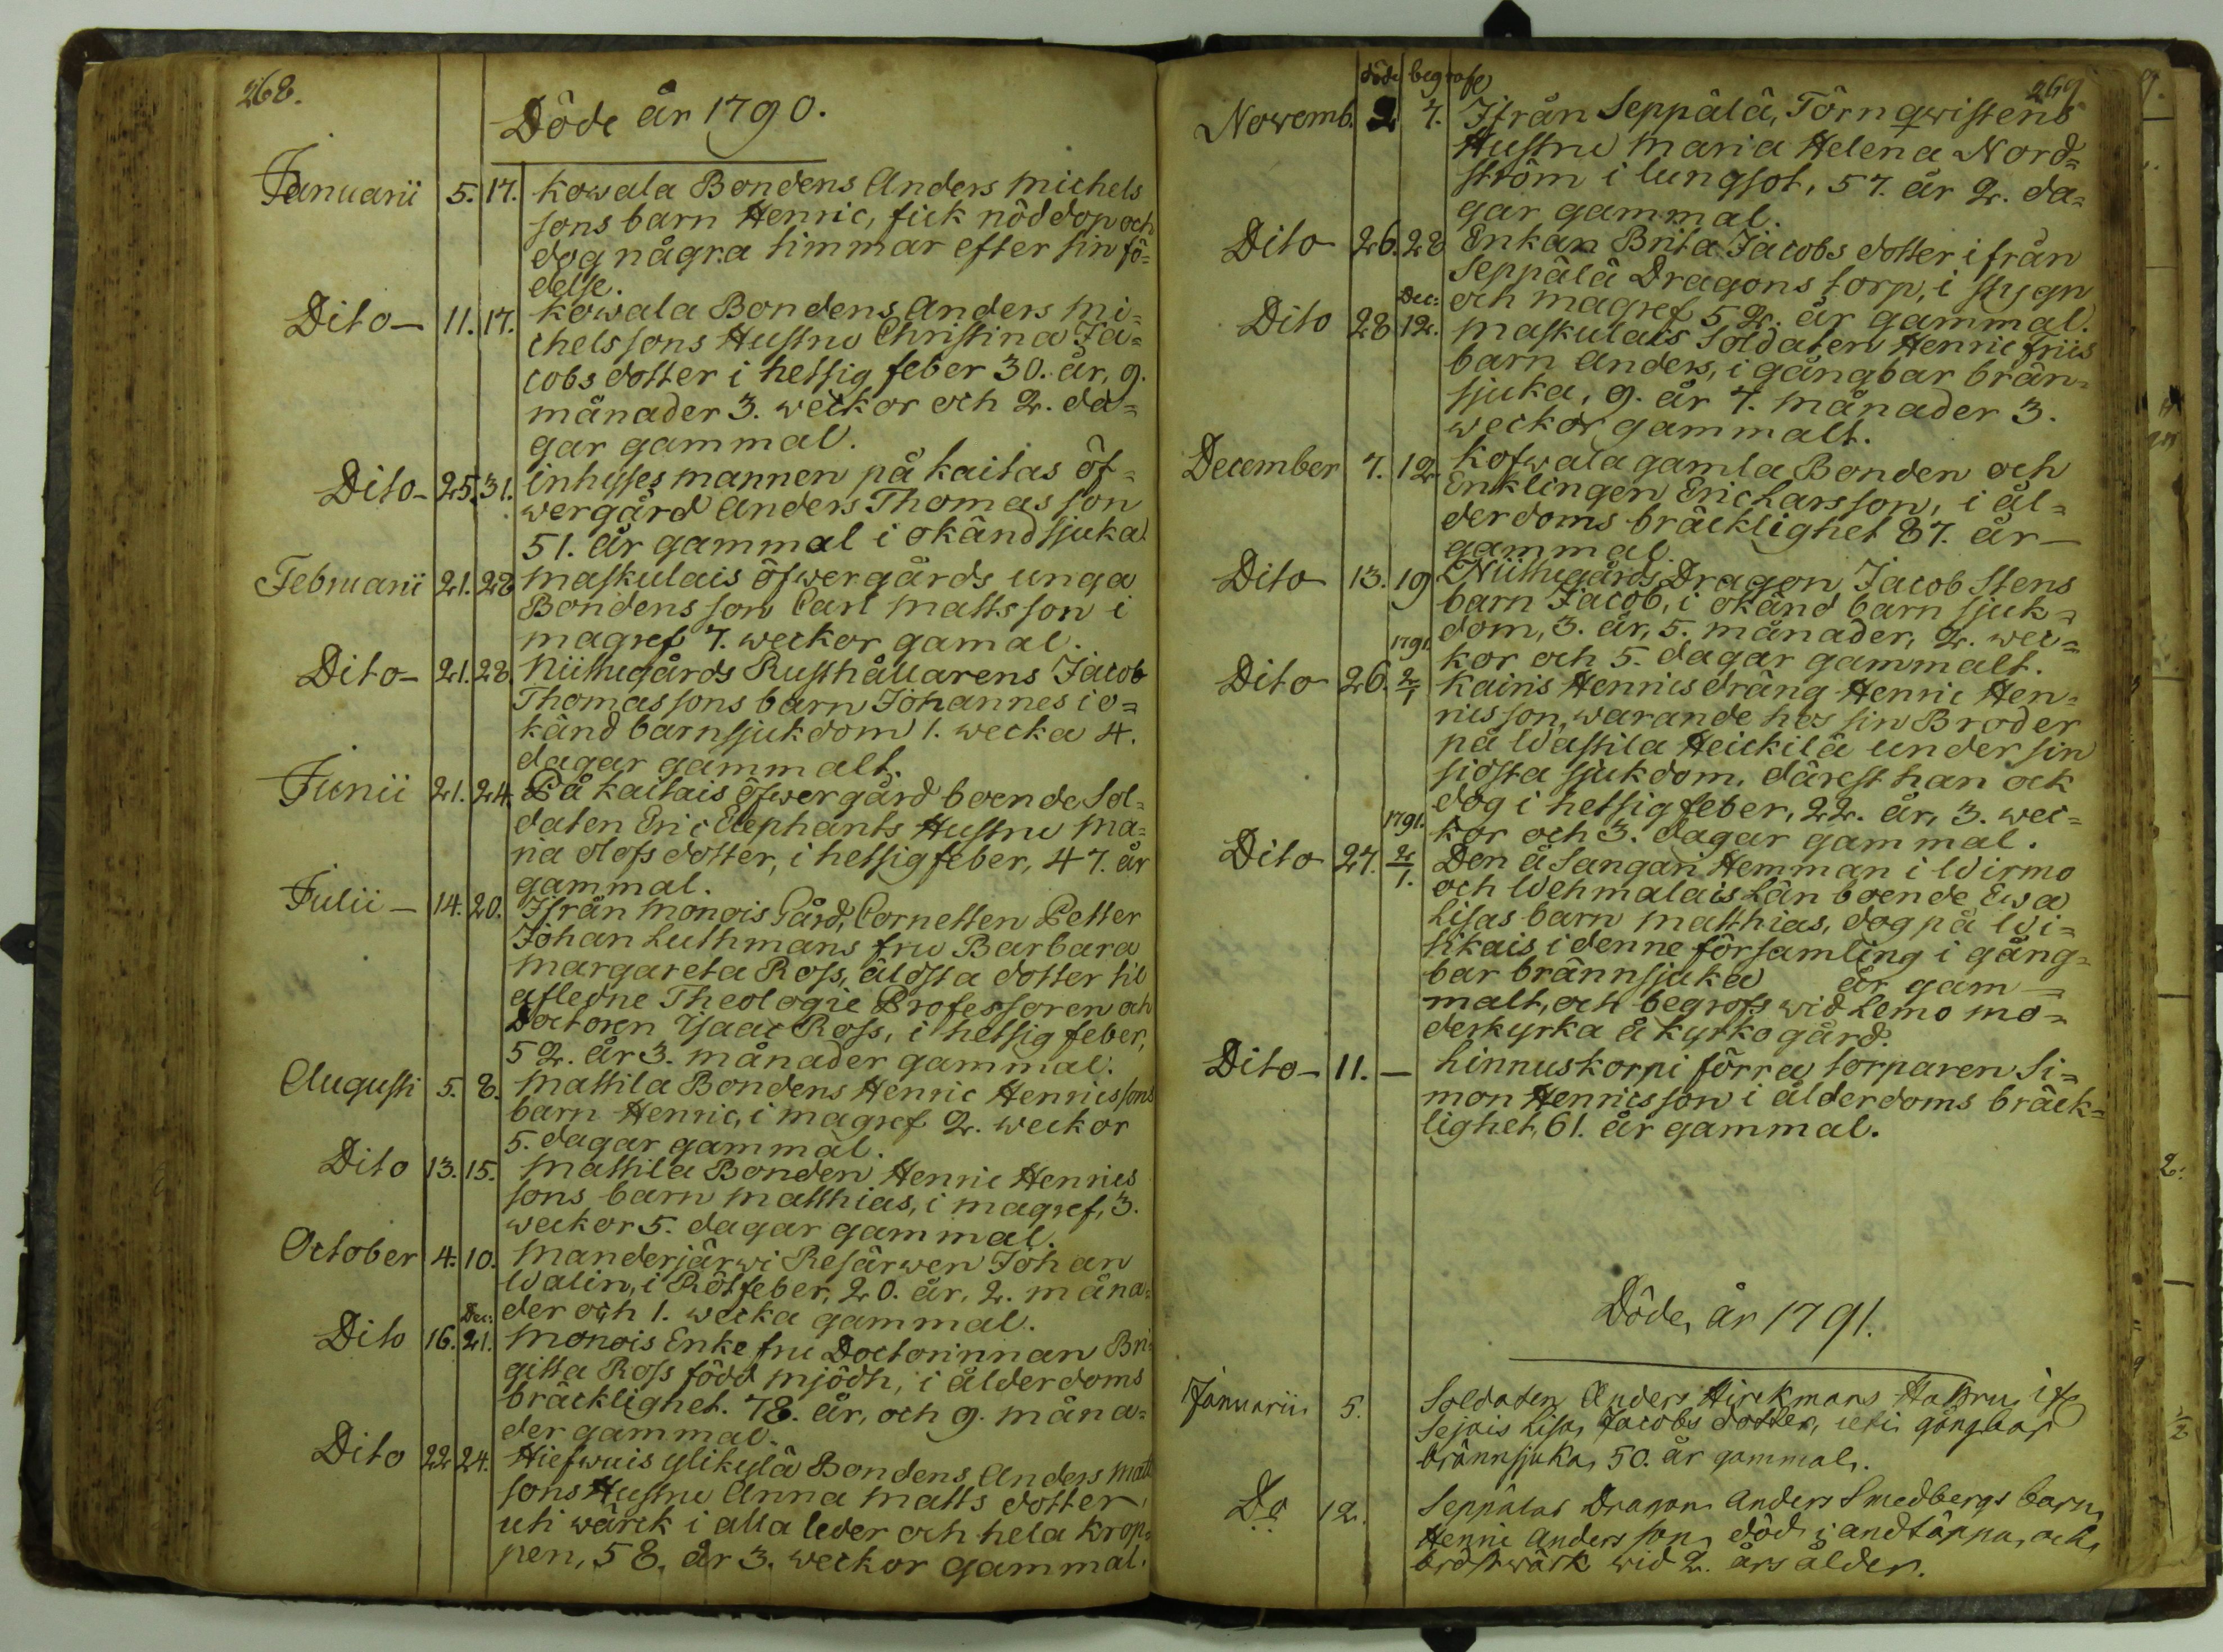 268.
Döde år 1790.
Januarii 5. 17. Kowala Bondens Anders Michels
sons barn Henric, fick nöddop och
dog några timmar efter sin fö=
delse.
Dito— 11. 17. Kowala Bondens Anders Mi=
chelssons Hustru Christina Ja=
cobs dotter i hetsig feber 30. år, 9.
månader 3. weckor och 2. da=
gar gammal.
Dito— 25. 31. Inhysses mannen på Kaitas öf=
wergård Anders Thomas son
51. år gammal i okänd sjuka.
Februarii 21. 28 Maskulais öfwergårds unga
Bondens son Carl Mattsson i
magref 7. weckor gamal.
Dito— 21. 28. Niittugårds Rusthållarens Jacob
Thomassons barn Johannes i o=
känd barnsjukdom 1. wecka 4.
dagar gammalt.
Junii 21. 24. På Kaitais öfwergård boende Sol=
daten Eric Elephants Hustru Ma=
ria Olofs dotter, i hetsig feber, 47. år
gammal.
Julii— 14. 20. Ifrån Monois Gård, Cornetten Petter
Johan Luthmans fru Barbara
Margareta Ross, äldsta dotter til
afledne Theologiæ Professoren och
Doctoren Isaac Ross, i hetsig feber,
52. år 3. månader gammal.
Augusti 5. 8. Mattila Bondens Henric Henricssons
barn Henric, i magref 2. weckor
5. dagar gammal.
Dito 13. 15. Mattila Bonden Henric Henrics
sons barn Matthias, i magref, 3.
weckor 5. dagar gammal.
October 4. 10. Manderjärwi Resärwen Johan
Walin, i Rötfeber, 20. år, 2. måna=
der och 1. wecka gammal.
Dec:
Dito 16. 21. Monois Enke fru Doctorinnan Bri=
gitta Ross född Mjödh, i ålderdoms
bräcklighet. 78. år, och 9. måna=
der gammal.
Dito 22 24. Hiefwuis ylikylä Bondens Anders Matt
sons Hustru Anna Matts dotter,
uti wärck i alla leder och hela krop=
pen, 58. år 3. weckor gammal.
269
döde begrafs
Nowemb. 2 7. Ifrån Seppälä, Törnqwistens
Hustru Maria Helena Nord=
ström i lungsot, 57. år 2. da=
gar gammal.
Dito 26. 28 Enkan Brita Jacobs dotter ifrån
Seppälä Dragons torp, i stygn
och magref 52. år gammal.
Dec:
Dito 28 12. Maskulais Soldaten Henric Friis
barn Anders, i gångbar brän=
sjuka, 9. år 7. månader 3.
weckor gammalt.
December 7. 12 Kofwala gamla Bonden och
Enklingen Eric Larsson, i ål=
derdoms bräcklighet 87. år—
gammal.
Dito 13. 19 Niittugårds Dragon Jacob Stens
barn Jacob, i okänd barn sjuk=
dom, 3. år, 5. månader, 2. wec=
kor och 5. dagar gammalt.
1791.
Dito 26. 2/1 Kairis Henrics dräng Henric Hen=
ricsson, warande hos sin Broder
på Wastila Heickilä under sin
sidsta sjukdom, därest han ock
dog i hetsig feber, 22. år, 3. wec=
kor och 3. dagar gammal.
1791.
Dito 27. 2/1. Den å Sangari Hemman i Wirmo
och Wehmalais Län boende Ewa
Lisas barn Matthias, dog på Wi=
tikais i denne församling i gång=
bar brännsjuka år gam=
malt, och begrofs wid Lemo mo=
derkyrka å kyrkogård.
Dito— 11. — Linnuskorpi förra torparen Si=
mon Henricsson i ålderdoms bräck=
lighet, 61. år gammal.
Döde, år 1791.
Januarii 5. Soldaten Anders Hirckmans Hustru if
Sejais Lisa Jacobs dotter, uti gångbar
brännsjuka, 50. år gammal.
Do 12. Seppälas Dragon Anders Smedbergs barn,
Henric Andersson, död i andtäppa, och
bröstwärk wid 2. års ålder.